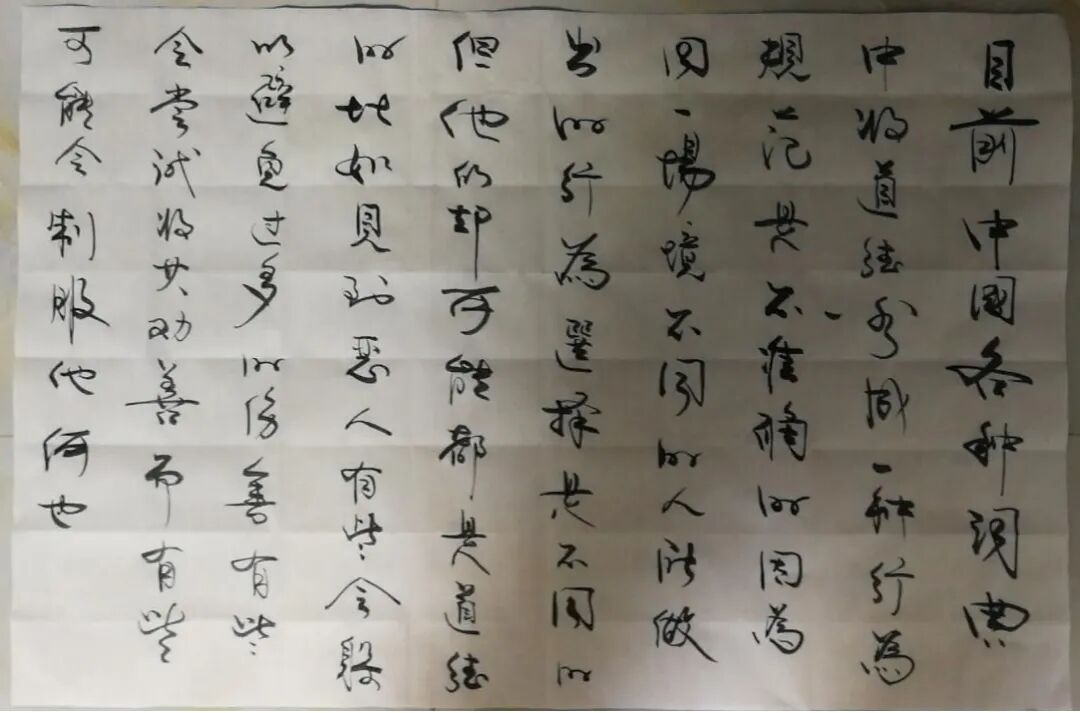 目前中國各种词典
中将道德成一种行為
規范是不准确的因為
同一場境不同的人所做
出的行為選擇是不同的
但他的却可能都是道德
的比如見到惡人有些会躲
以避免过多的伤害有些
会尝试将其劝善而有些
可能会制服他何也